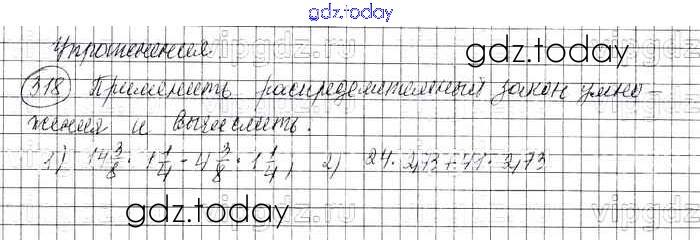 gdz.today
Упражнения
gdz.today
318 Применить распределительный закон умно-
жения и вычислить.
1) 14 3/8 · 1 1/4 - 4 3/8 · 1 1/4; 2) 24 · 2,73 + 71 · 2,73
gdz.today